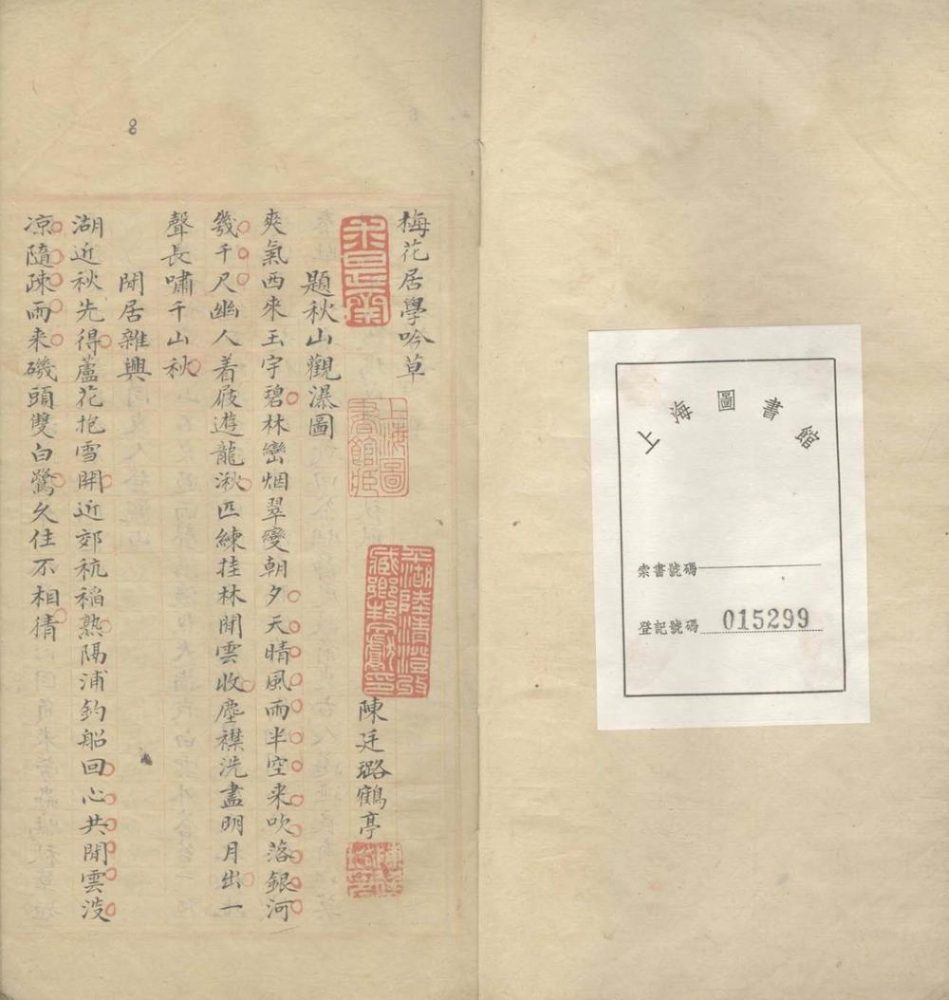 上海圖書館
索書號碼
登記號碼 015299
8
梅花居學吟草
陳廷璐鶴亭
上海圖書館藏
平湖陸清澄
題秋山觀瀑圖
爽氣西來玉宇碧林巒烟翠變朝夕天晴風雨半空来吹落銀河
幾千尺幽人着屐遊龍湫匹練挂林開雲收塵襟洗盡明月出一
聲長嘯千山秋
閒居雜興
湖近秋先得蘆花抱雪開近郊秔稻熟隔浦釣船回心共閒雲没
凉隨疎雨来磯頭雙白鷺久住不相猜